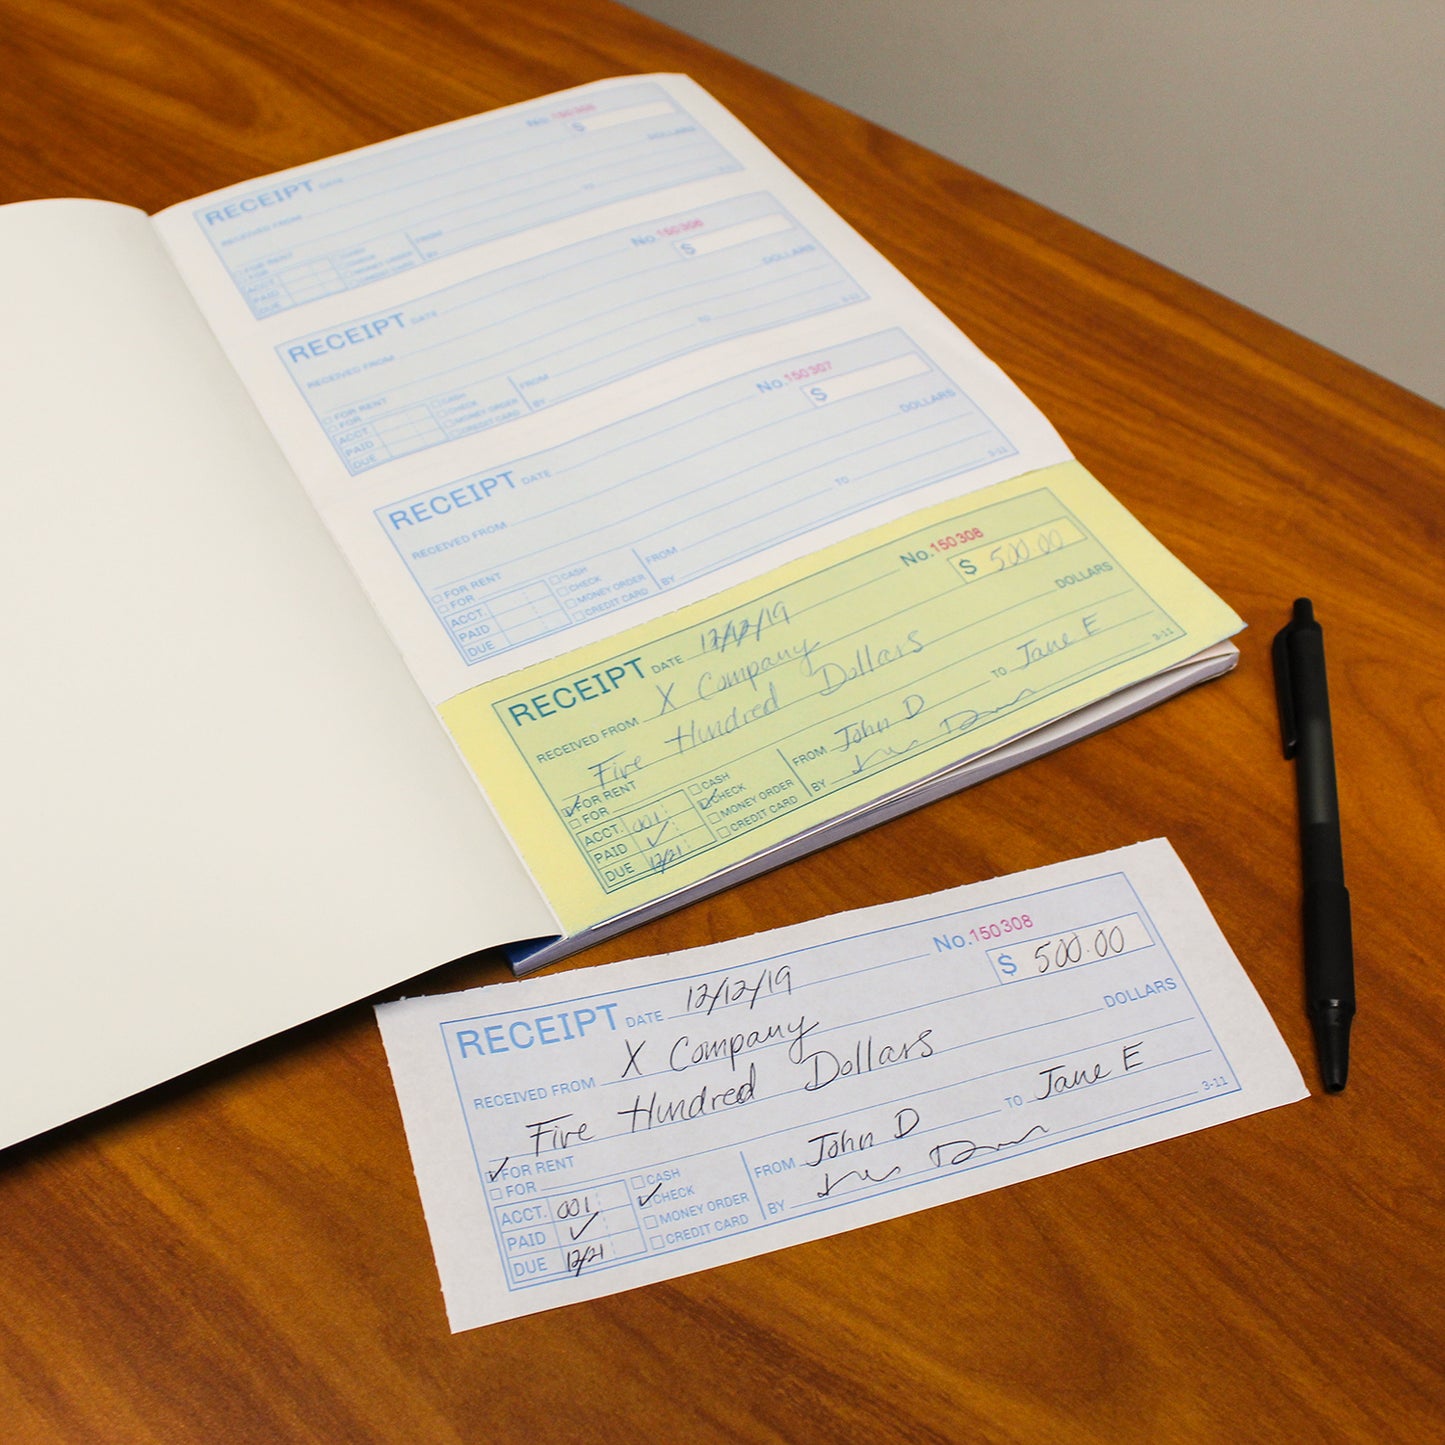 No. 150308
RECEIPT DATE
$
DOLLARS
RECEIVED FROM
TO
FOR RENT
FOR
ACCT.
PAID
DUE
CASH
CHECK
MONEY ORDER
CREDIT CARD
FROM
BY
3-11
No. 150306
RECEIPT DATE
$
DOLLARS
RECEIVED FROM
TO
FOR RENT
FOR
ACCT.
PAID
DUE
CASH
CHECK
MONEY ORDER
CREDIT CARD
FROM
BY
3-11
No. 150307
RECEIPT DATE
$
DOLLARS
RECEIVED FROM
TO
FOR RENT
FOR
ACCT.
PAID
DUE
CASH
CHECK
MONEY ORDER
CREDIT CARD
FROM
BY
3-11
RECEIPT DATE 12/12/19 No. 150308
RECEIVED FROM X Company $ 500.00
Five Hundred Dollars DOLLARS
FOR RENT
FOR
ACCT. 001
PAID ✓
DUE 12/21
CASH
CHECK
MONEY ORDER
CREDIT CARD
FROM John D TO Jane E
BY
3-11
RECEIPT DATE 12/12/19 No. 150308
RECEIVED FROM X Company $ 500.00
Five Hundred Dollars DOLLARS
FOR RENT
FOR
ACCT. 001
PAID ✓
DUE 12/21
CASH
CHECK
MONEY ORDER
CREDIT CARD
FROM John D TO Jane E
BY
3-11